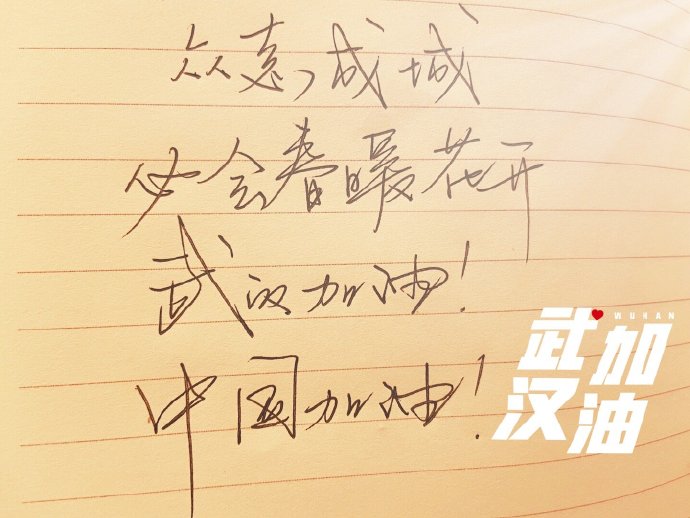 众志成城
必会春暖花开
武汉加油！
中国加油！
WUHAN
武汉加油